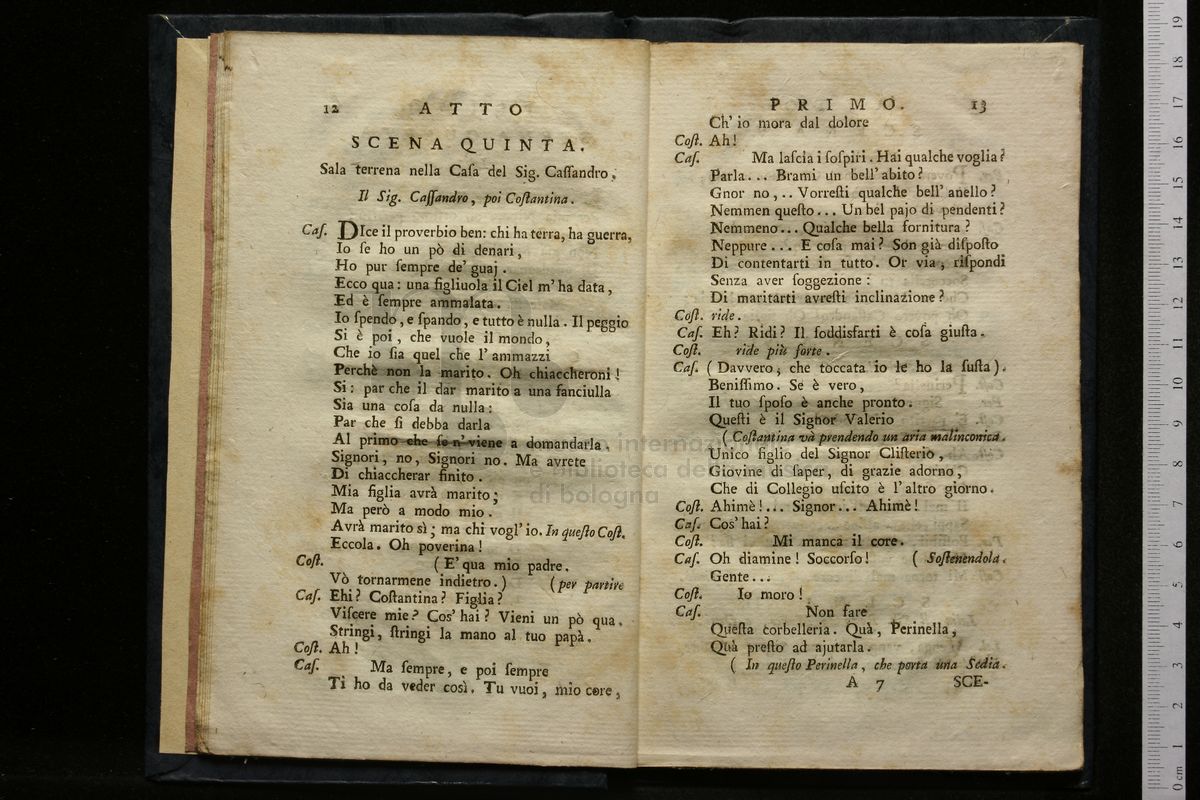 12 ATTO
SCENA QUINTA.
Sala terrena nella Caſa del Sig. Caſſandro,
Il Sig. Caſſandro, poi Coſtantina.
Caſ. DIce il proverbio ben: chi ha terra, ha guerra,
Io ſe ho un pò di denari,
Ho pur ſempre de' guaj.
Ecco qua: una figliuola il Ciel m' ha data,
Ed è ſempre ammalata.
Io ſpendo, e ſpando, e tutto è nulla. Il peggio
Si è poi, che vuole il mondo,
Che io ſia quel che l' ammazzi
Perchè non la marito. Oh chiaccheroni!
Si: par che il dar marito a una fanciulla
Sia una coſa da nulla:
Par che ſi debba darla
Al primo che ſe n' viene a domandarla.
Signori, no, Signori no. Ma avrete
Di chiaccherar finito.
Mia figlia avrà marito;
Ma però a modo mio.
Avrà marito sì; ma chi vogl' io. In queſto Coſt.
Eccola. Oh poverina!
Coſt. (E' qua mio padre.
Vò tornarmene indietro.) (per partire
Caſ. Ehi? Coſtantina? Figlia?
Viſcere mie? Cos' hai? Vieni un pò qua.
Stringi, ſtringi la mano al tuo papà.
Coſt. Ah!
Caſ. Ma ſempre, e poi ſempre
Ti ho da veder così. Tu vuoi, mio core,
PRIMO. 13
Ch' io mora dal dolore
Coſt. Ah!
Caſ. Ma laſcia i ſoſpiri. Hai qualche voglia?
Parla... Brami un bell' abito?
Gnor no,.. Vorreſti qualche bell' anello?
Nemmen queſto... Un bel pajo di pendenti?
Nemmeno... Qualche bella fornitura?
Neppure... E coſa mai? Son già diſpoſto
Di contentarti in tutto. Or via, riſpondi
Senza aver ſoggezione:
Di maritarti avreſti inclinazione?
Coſt. ride.
Caſ. Eh? Ridi? Il ſoddisfarti è coſa giuſta.
Coſt. ride più forte.
Caſ. (Davvero, che toccata io le ho la ſuſta).
Beniſſimo. Se è vero,
Il tuo ſpoſo è anche pronto.
Queſti è il Signor Valerio
(Coſtantina và prendendo un aria malinconica.
Unico figlio del Signor Cliſterio,
Giovine di ſaper, di grazie adorno,
Che di Collegio uſcito è l' altro giorno.
Coſt. Ahimè!... Signor... Ahimè!
Caſ. Cos' hai?
Coſt. Mi manca il core.
Caſ. Oh diamine! Soccorſo! (Soſtenendola.
Gente...
Coſt. Io moro!
Caſ. Non fare
Queſta corbelleria. Quà, Perinella,
Quà preſto ad ajutarla.
(In queſto Perinella, che porta una Sedia.
A 7 SCE-